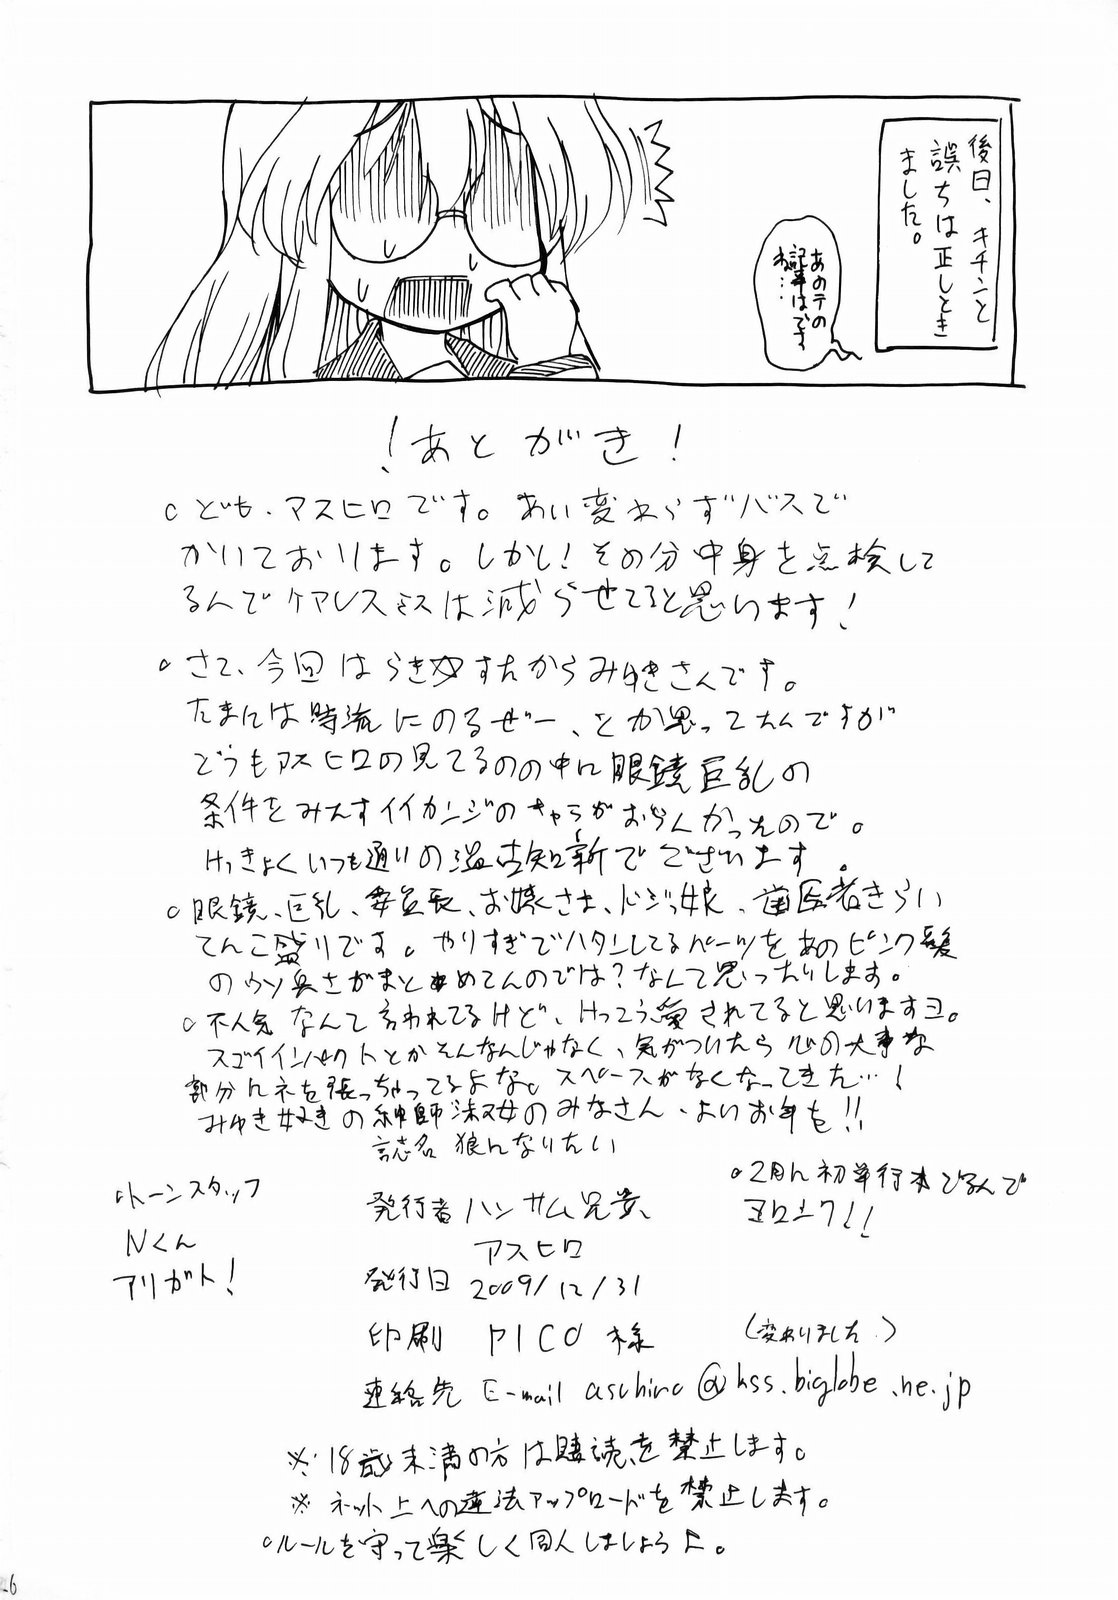 後日、キチンと
誤ちは正しとき
ました。
あのテの
記事はです
ね…
！あとがき！
○ども、アスヒロです。あい変わらずバスで
かいております。しかし！その分中身を点検して
るんでケアレスミスは減らせてると思います！
○さて、今回はらき☆すたからみゆきさんです。
たまには時流にのるぜー、とか思ってたんですが
どうもアスヒロの見てるのの中に眼鏡巨乳の
条件をみたすイイカンジのキャラがおらんかったので。
けっきょくいつも通りの温古知新でございます。
○眼鏡、巨乳、委員長、お嬢さま、ドジっ娘、歯医者きらい
てんこ盛りです。やりすぎでハタンしてるパーツをあのピンク髪
のウソ臭さがまとめてんのでは？なんて思ったりします。
○不人気なんて言われてるけど、けっこう愛されてると思いますヨ。
スゴイインパクトとかそんなんじゃなく、気がついたら心の大事な
部分にネを張っちゃってるよな。スペースがなくなってきた…！
みゆき好きの紳師淑女のみなさん、よいお年を!!
誌名 狼になりたい
○トーンスタッフ
Nくん
アリガト！
発行者 ハンサム兄貴、
アスヒロ
○2月に初単行本でるんで
ヨロシク!!
発行日 2009/12/31
印刷 PICO 様
(変わりました)
連絡先 E-mail asuhiro@kss.biglobe.ne.jp
※18歳未満の方は購読を禁止します。
※ネット上への違法アップロードを禁止します。
○ルールを守って楽しく同人しましょうよ。